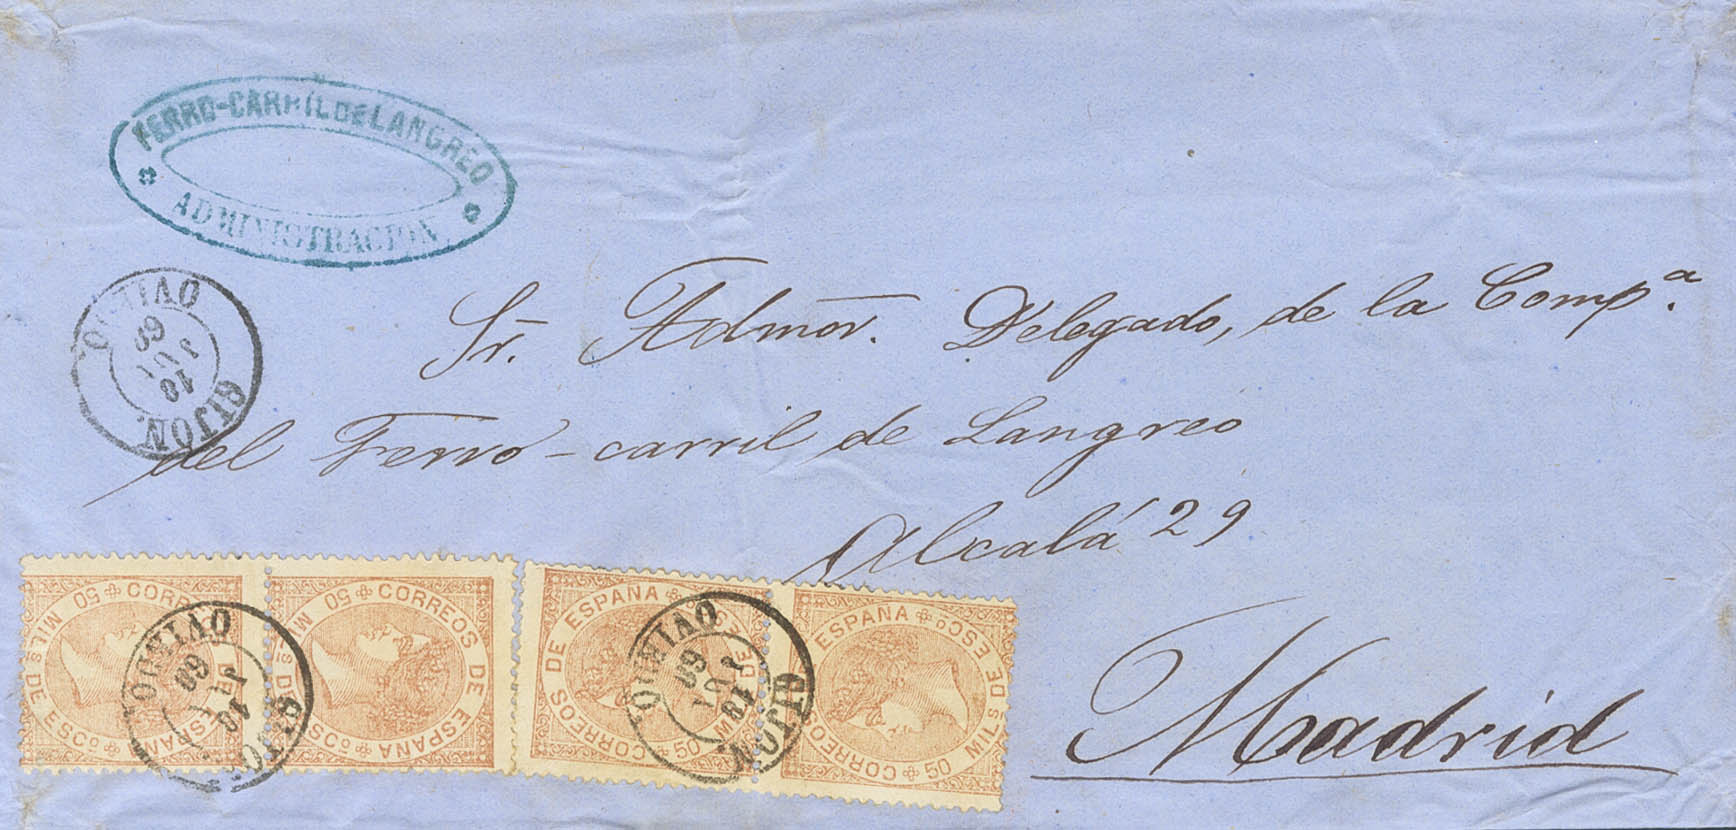 FERRO-CARRIL DE LANGREO
ADMINISTRACION
GIJON.
18
JUL
69
OVIEDO.
Sr. Admor. Delegado, de la Comp.ª
del Ferro-carril de Langreo
Alcalá 29
Madrid
CORREOS DE ESPAÑA
50 MILS DE ESCO
CORREOS DE ESPAÑA
50 MILS DE ESCO
CORREOS DE ESPAÑA
50 MILS DE ESCO
CORREOS DE ESPAÑA
50 MILS DE ESCO
GIJON.
18
JUL
69
OVIEDO.
GIJON.
18
JUL
69
OVIEDO.